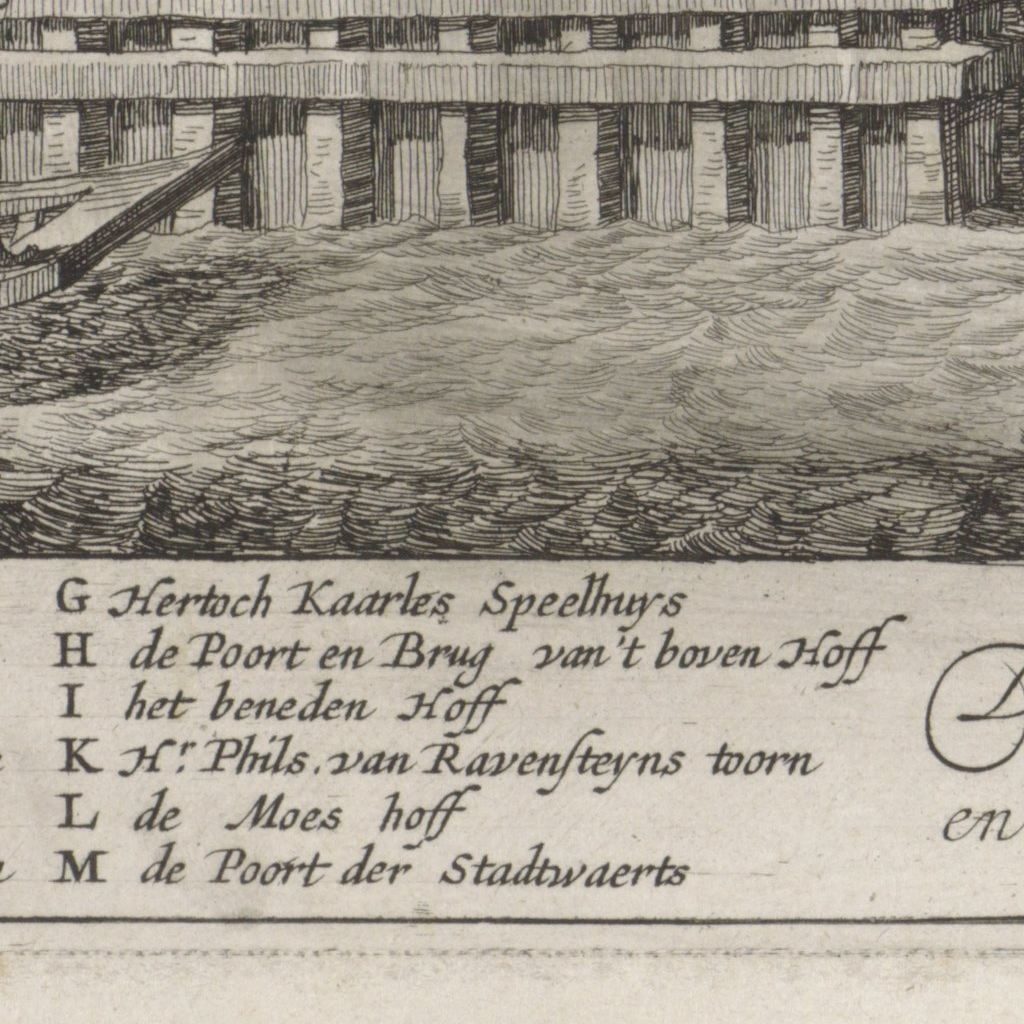 G Hertoch Kaarles Speelhuys
H de Poort en Brug van't boven Hoff
I het beneden Hoff
K Hr. Phils. van Ravenſteyns toorn
L de Moes hoff
en
M de Poort der Stadtwaerts